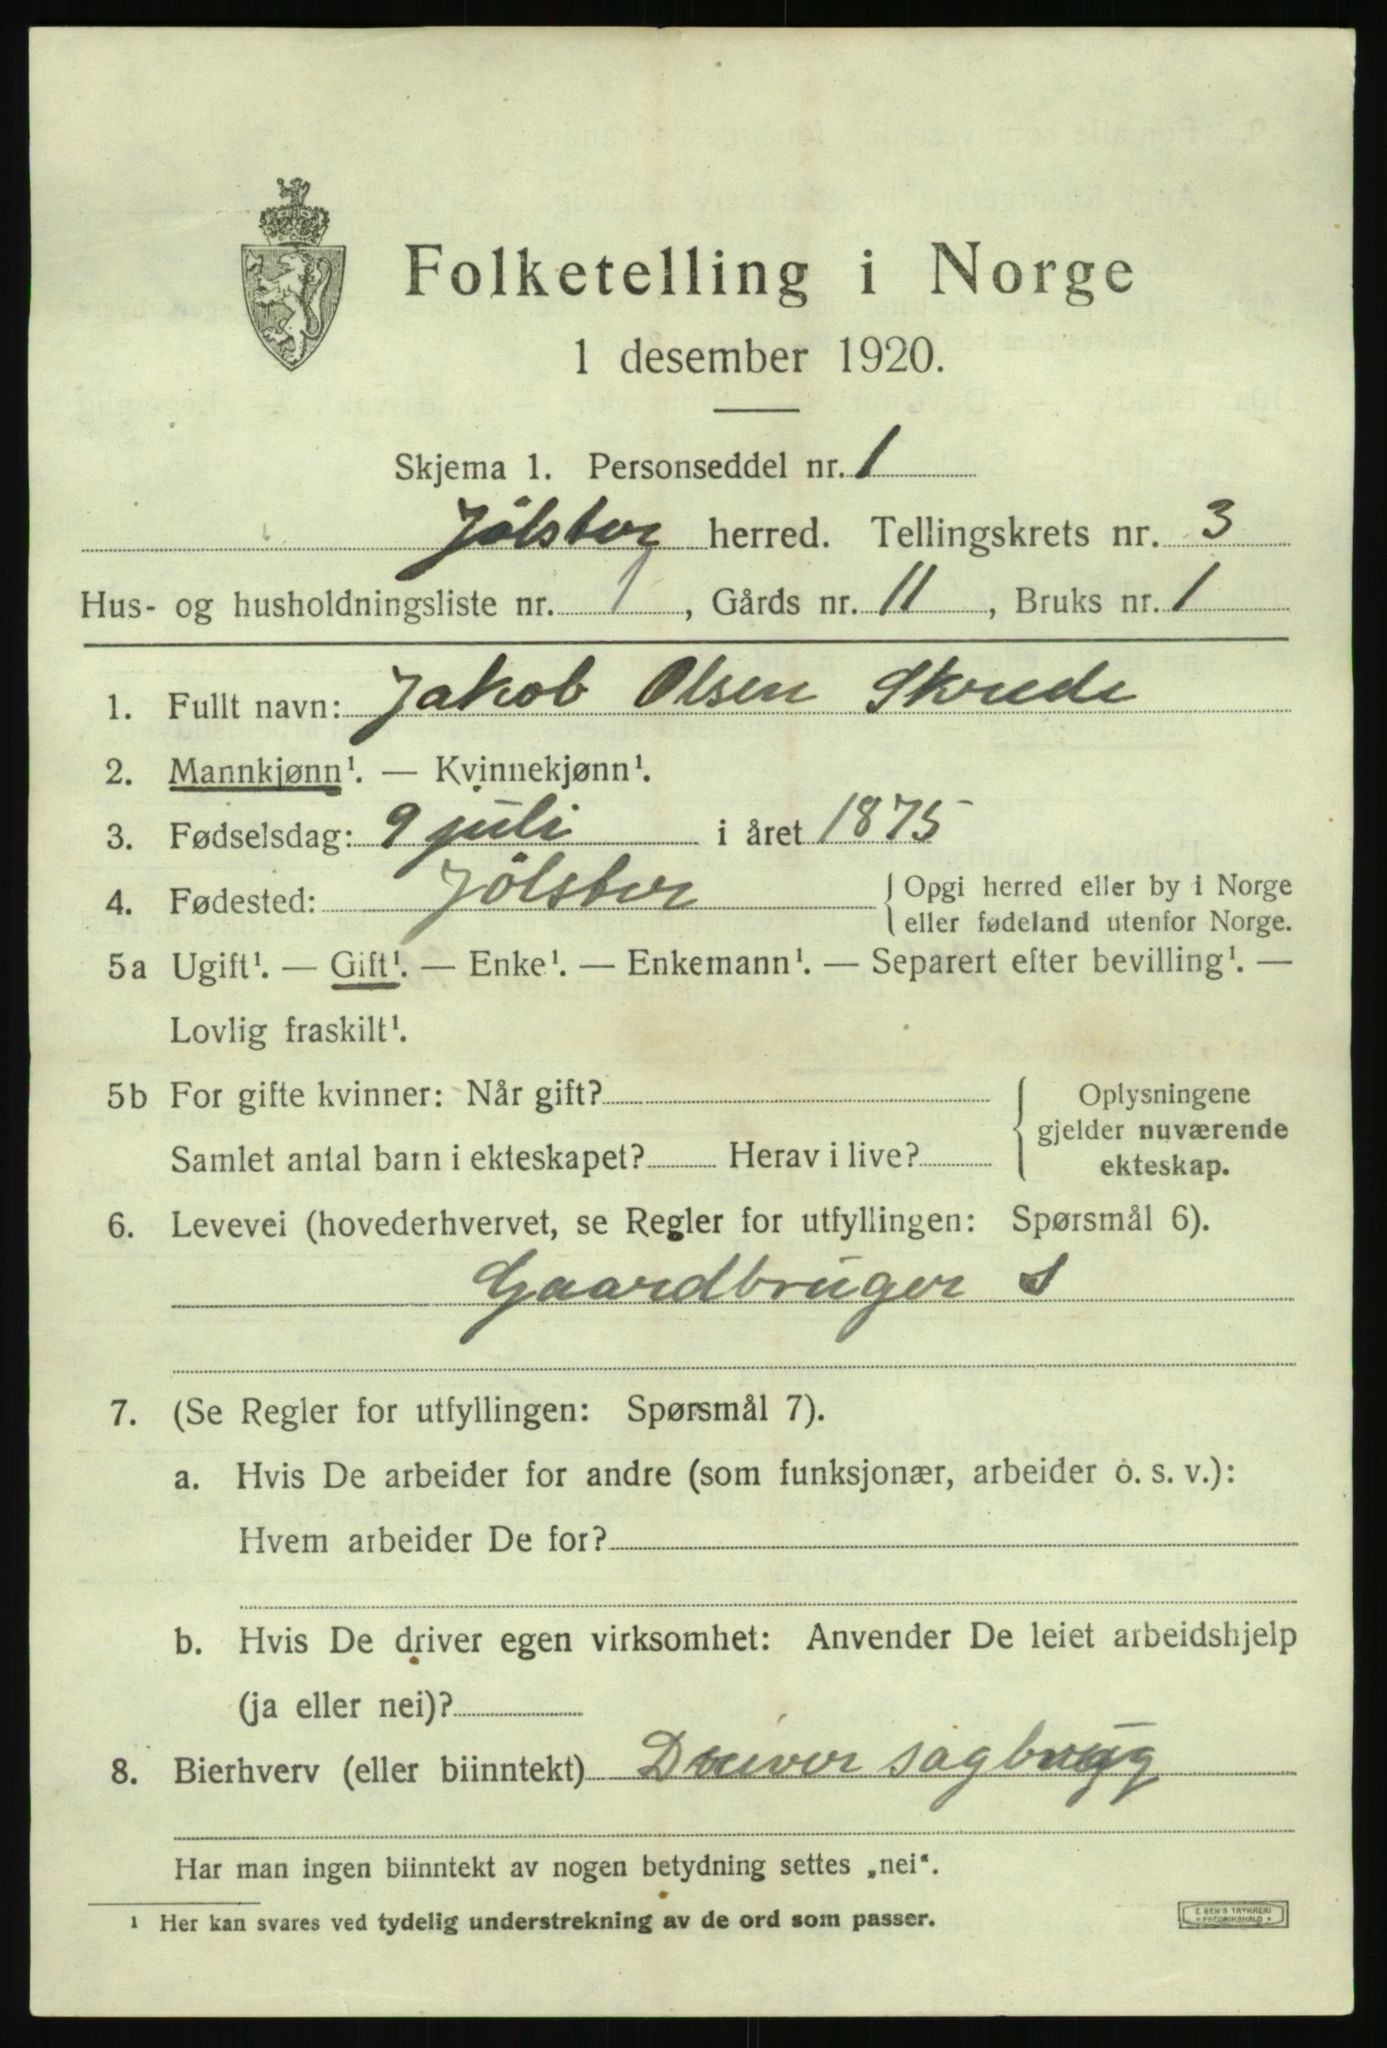 Folketelling i Norge
1 desember 1920.
Skjema 1. Personseddel nr. 1
Jölster herred. Tellingskrets nr. 3
Hus- og husholdningsliste nr. 1, Gårds nr. 11, Bruks nr. 1
1. Fullt navn: Jakob Olsen Skrede
2. Mannkjønn¹. — Kvinnekjønn¹.
3. Fødselsdag: 9 juli i året 1875
4. Fødested: Jölster { Opgi herred eller by i Norge
eller fødeland utenfor Norge.
5a Ugift¹. — Gift¹. — Enke¹. — Enkemann¹. — Separert efter bevilling¹. —
Lovlig fraskilt¹.
5b For gifte kvinner: Når gift?
Samlet antal barn i ekteskapet? Herav i live?
{ Oplysningene
gjelder nuværende
ekteskap.
6. Levevei (hovederhvervet, se Regler for utfyllingen: Spørsmål 6).
Gaardbruger S
7. (Se Regler for utfyllingen: Spørsmål 7).
a. Hvis De arbeider for andre (som funksjonær, arbeider o. s. v.):
Hvem arbeider De for?
b. Hvis De driver egen virksomhet: Anvender De leiet arbeidshjelp
(ja eller nei)?
8. Bierhverv (eller biinntekt) Driver sagbrug
Har man ingen biinntekt av nogen betydning settes „nei“.
¹ Her kan svares ved tydelig understrekning av de ord som passer.
E. SEM'S TRYKKERI
FREDRIKSHALD